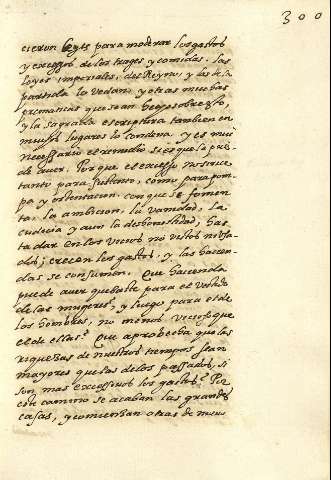 300
cieron leyes para moderar los gastos
y excessos de los trages y comidas. las
leyes imperiales, del Reyno, y las de la
partida lo vedan, y otras muchas
premancias que sean sobre esto,
y la sagrada escriptura tambien en
muchos lugares lo condena. y es mui
necessario el remedio si es que le pue
de aver. Porque el excesso no sirve
tanto para sustento, como para pom
pa y ostentacion. con que se fomen
ta, la ambicion, la vanidad, la
cudicia y aun la deshonestidad, has
ta dar en los vicios no vistos ni usa
dos; crecen los gastos, y las hacien
das se consumen. Que hacienda
puede aver que baste para el vestido
de las mugeres? y luego para el de
los hombres, no menos vicioso que
el de ellas? Que aprobecha que las
riquezas de nuestros tiempos sean
mayores que las de los passados, si
son mas excessivos los gastos? Por
este camino se acaban las grandes
casas, y comienzan otras de nuevo